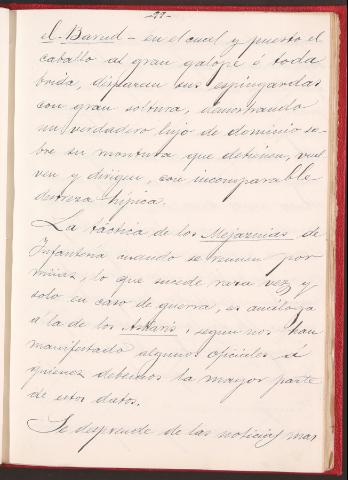 -99-
el-Barud - en el cual y puesto el
caballo al gran galope ó toda
brida, disparan sus espingardas
con gran soltura, demostrando
un verdadero lujo de dominio so-
bre su montura que detienen, vuel
ven y dirigen, con incomparable
destreza hípica.
La táctica de los Mejaznías de
Infantería cuando se reunen por
mías, lo que sucede rara vez y
solo en caso de guerra, es análoga
á la de los Askaris, segun nos han
manifestado algunos oficiales á
quienes debemos la mayor parte
de estos datos.
Se desprende de las noticias mas